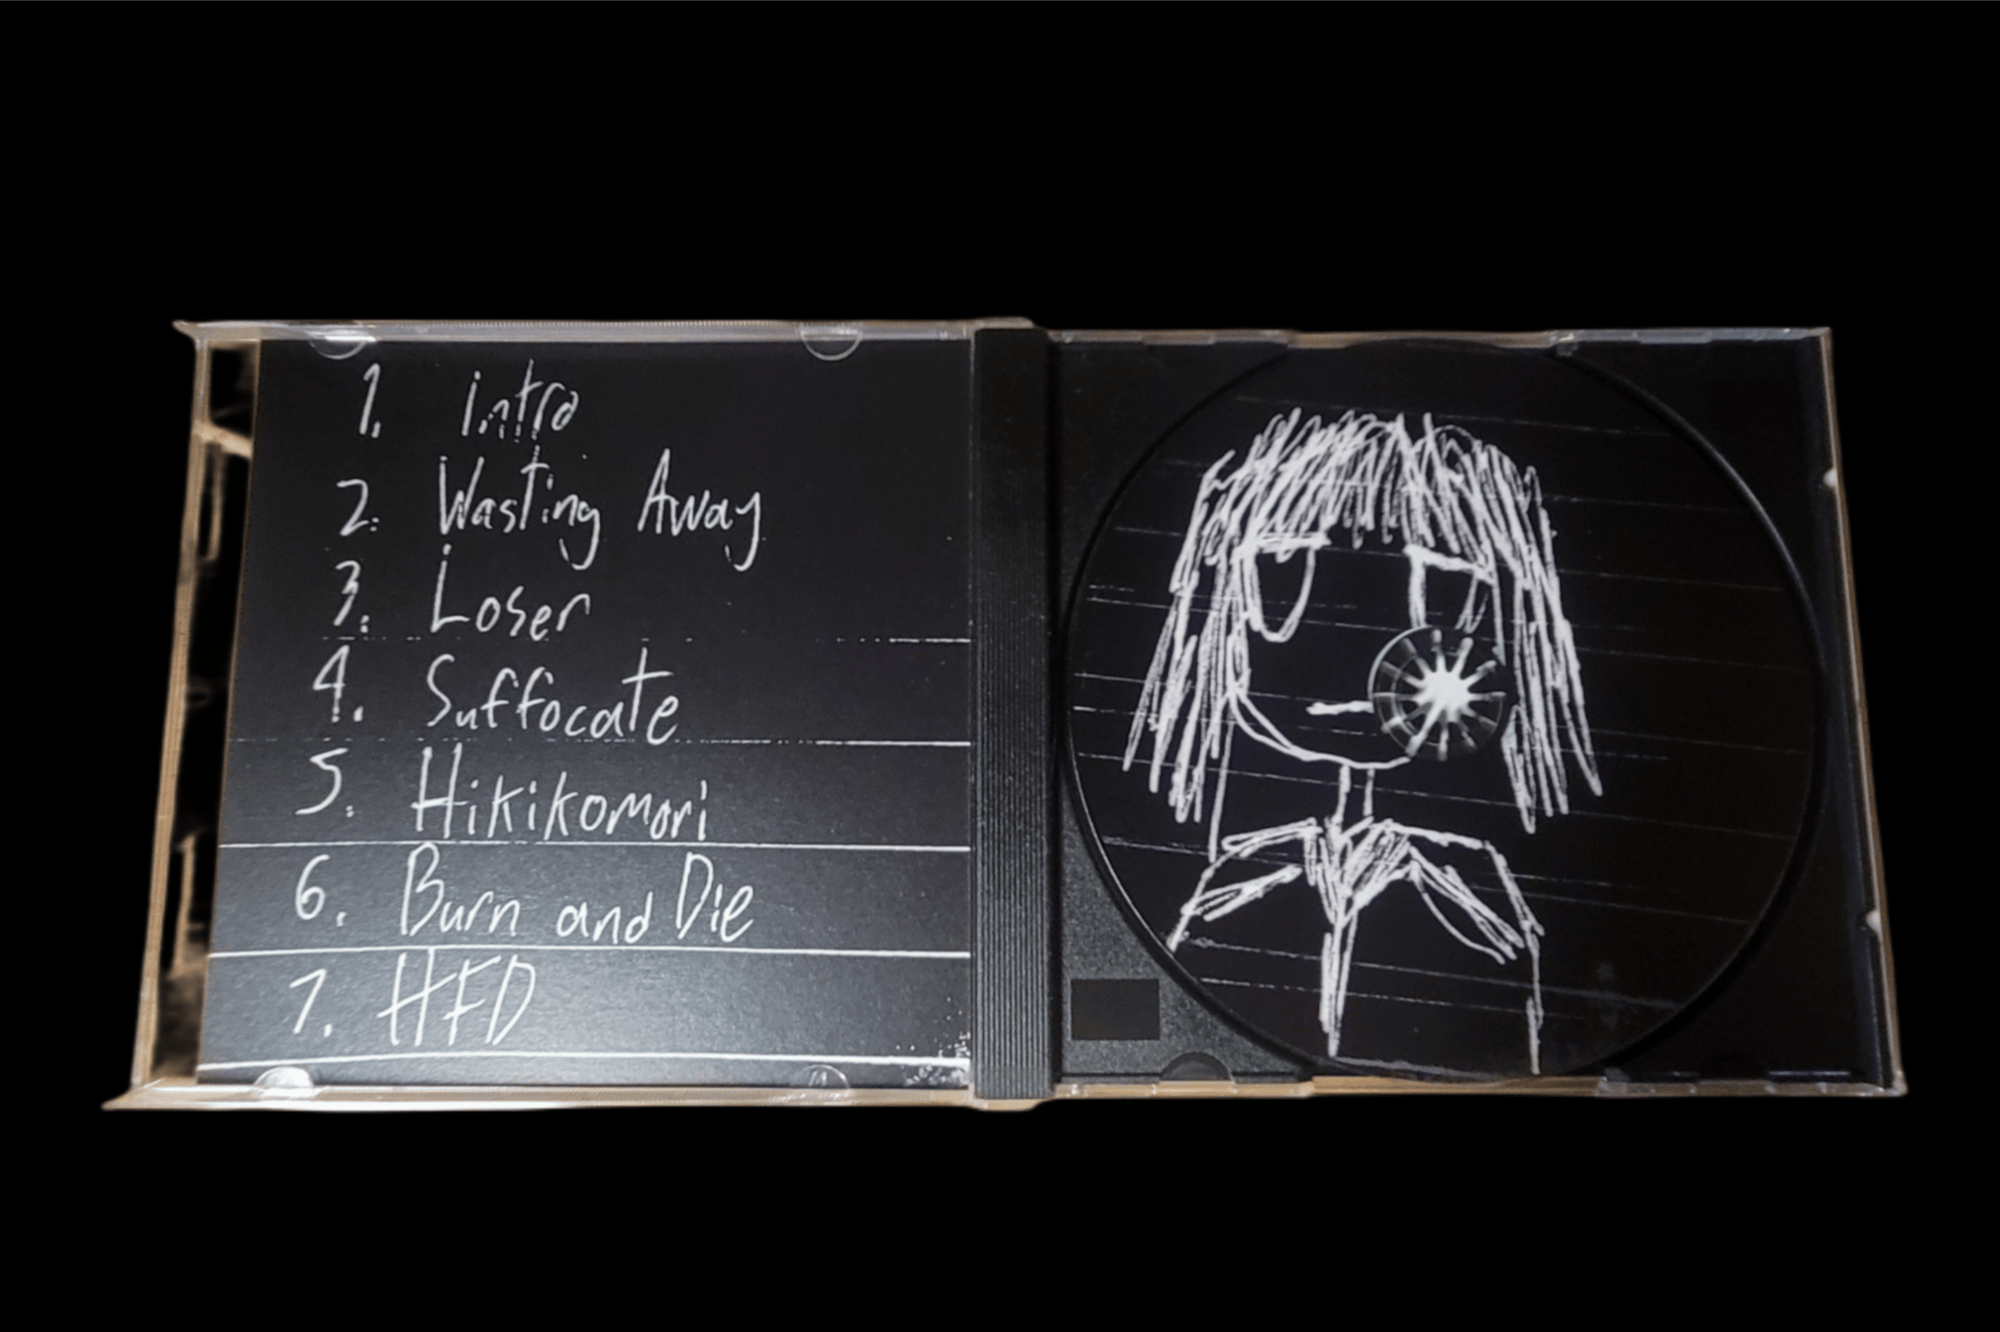 1. intro
2. Wasting Away
3. Loser
4. Suffocate
5. Hikikomori
6. Burn and Die
7. HFD